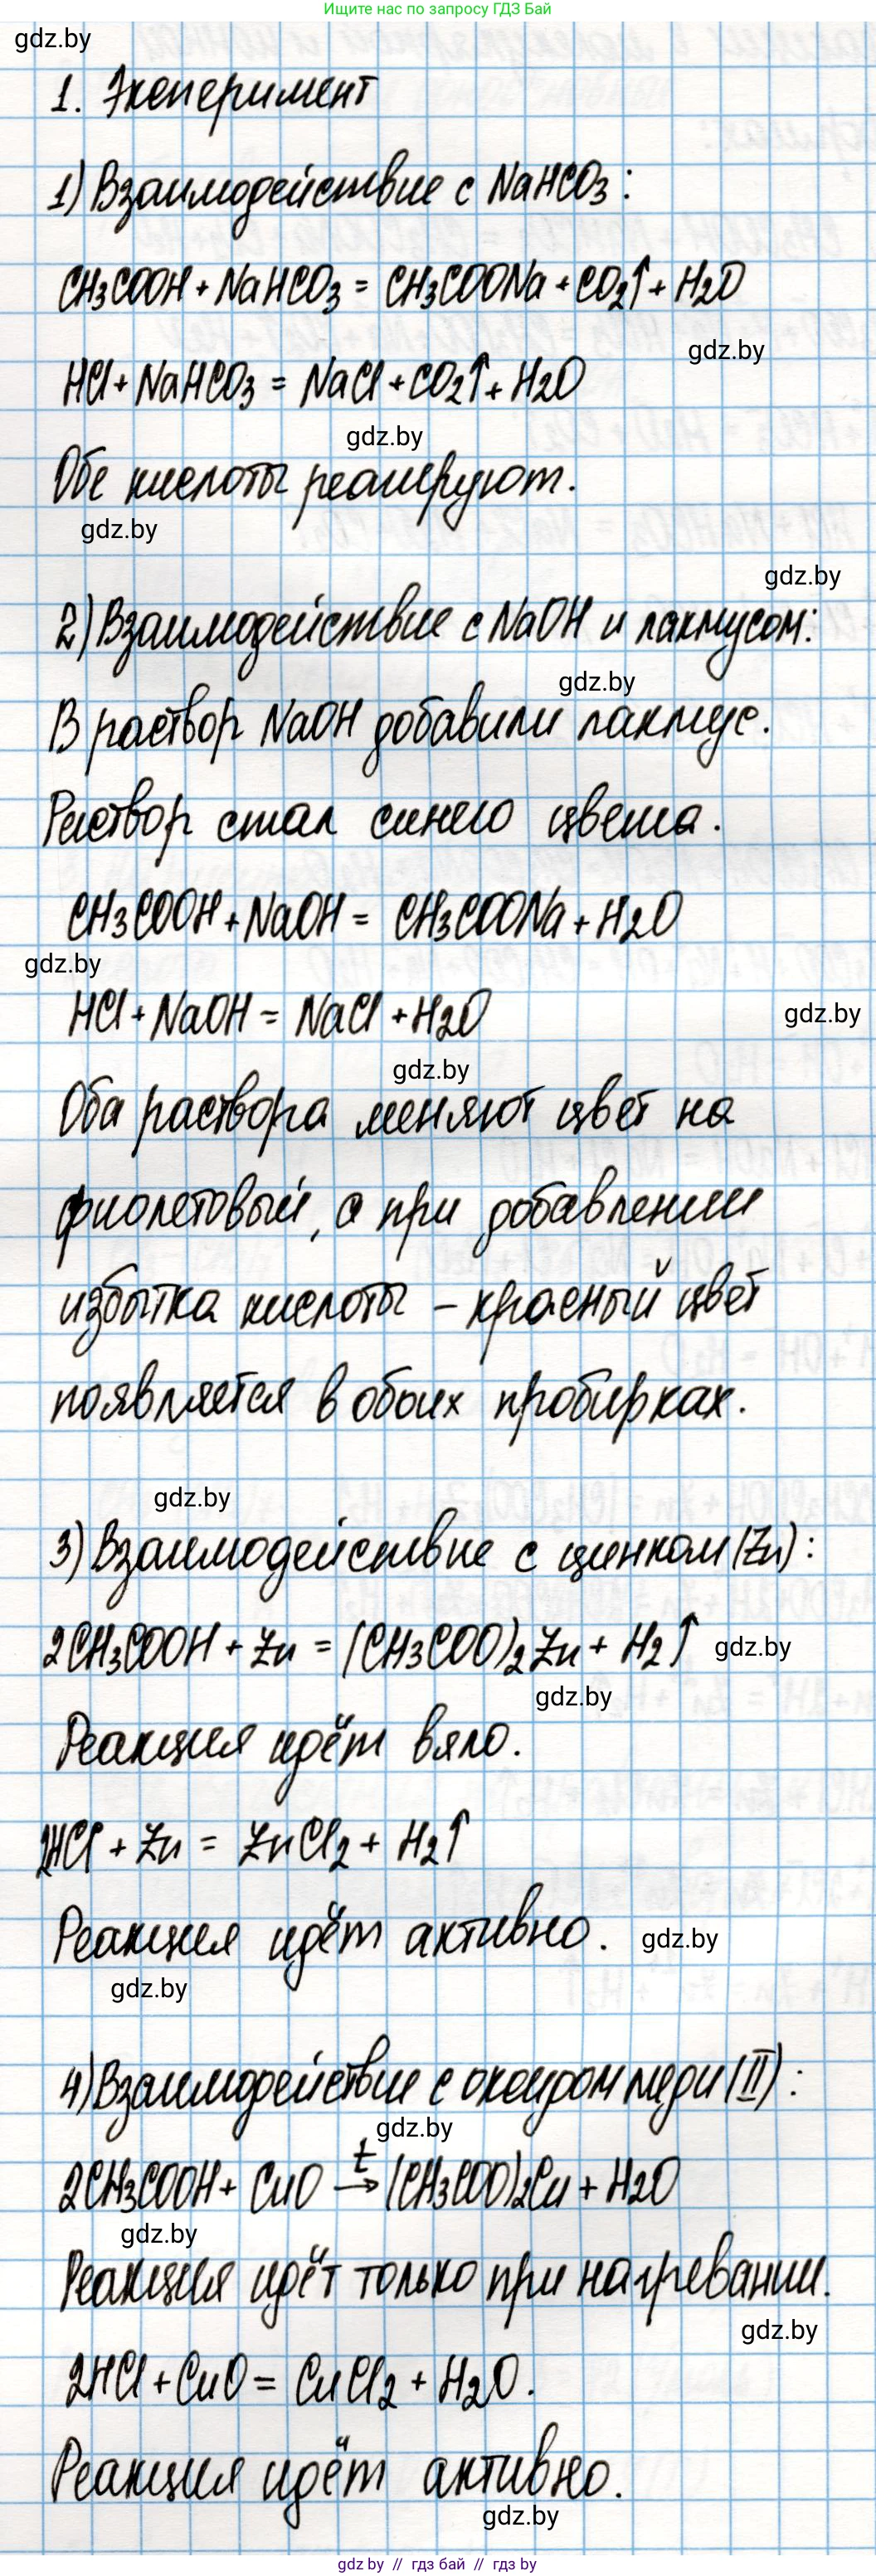 Ищите нас по запросу ГДЗ Бай
gdz.by
1. Эксперимент
1) Взаимодействие с NaHCO3:
CH3COOH + NaHCO3 = CH3COONa + CO2↑ + H2O
gdz.by
HCl + NaHCO3 = NaCl + CO2↑ + H2O
gdz.by
Обе кислоты реагируют.
gdz.by
gdz.by
2) Взаимодействие с NaOH и лакмусом:
gdz.by
В раствор NaOH добавили лакмус.
Раствор стал синего цвета.
CH3COOH + NaOH = CH3COONa + H2O
gdz.by
HCl + NaOH = NaCl + H2O
gdz.by
gdz.by
Оба раствора меняют цвет на
фиолетовый, а при добавлении
избытка кислоты – красный цвет
появляется в обоих пробирках.
gdz.by
3) Взаимодействие с цинком (Zn):
2CH3COOH + Zn = (CH3COO)2Zn + H2↑
gdz.by
gdz.by
Реакция идёт вяло.
2HCl + Zn = ZnCl2 + H2↑
Реакция идёт активно.
gdz.by
gdz.by
4) Взаимодействие с оксидом меди (II):
gdz.by
2CH3COOH + CuO t→ (CH3COO)2Cu + H2O
gdz.by
Реакция идёт только при нагревании.
gdz.by
2HCl + CuO = CuCl2 + H2O.
Реакция идёт активно.
gdz.by
gdz by // гдз бай // gdz by